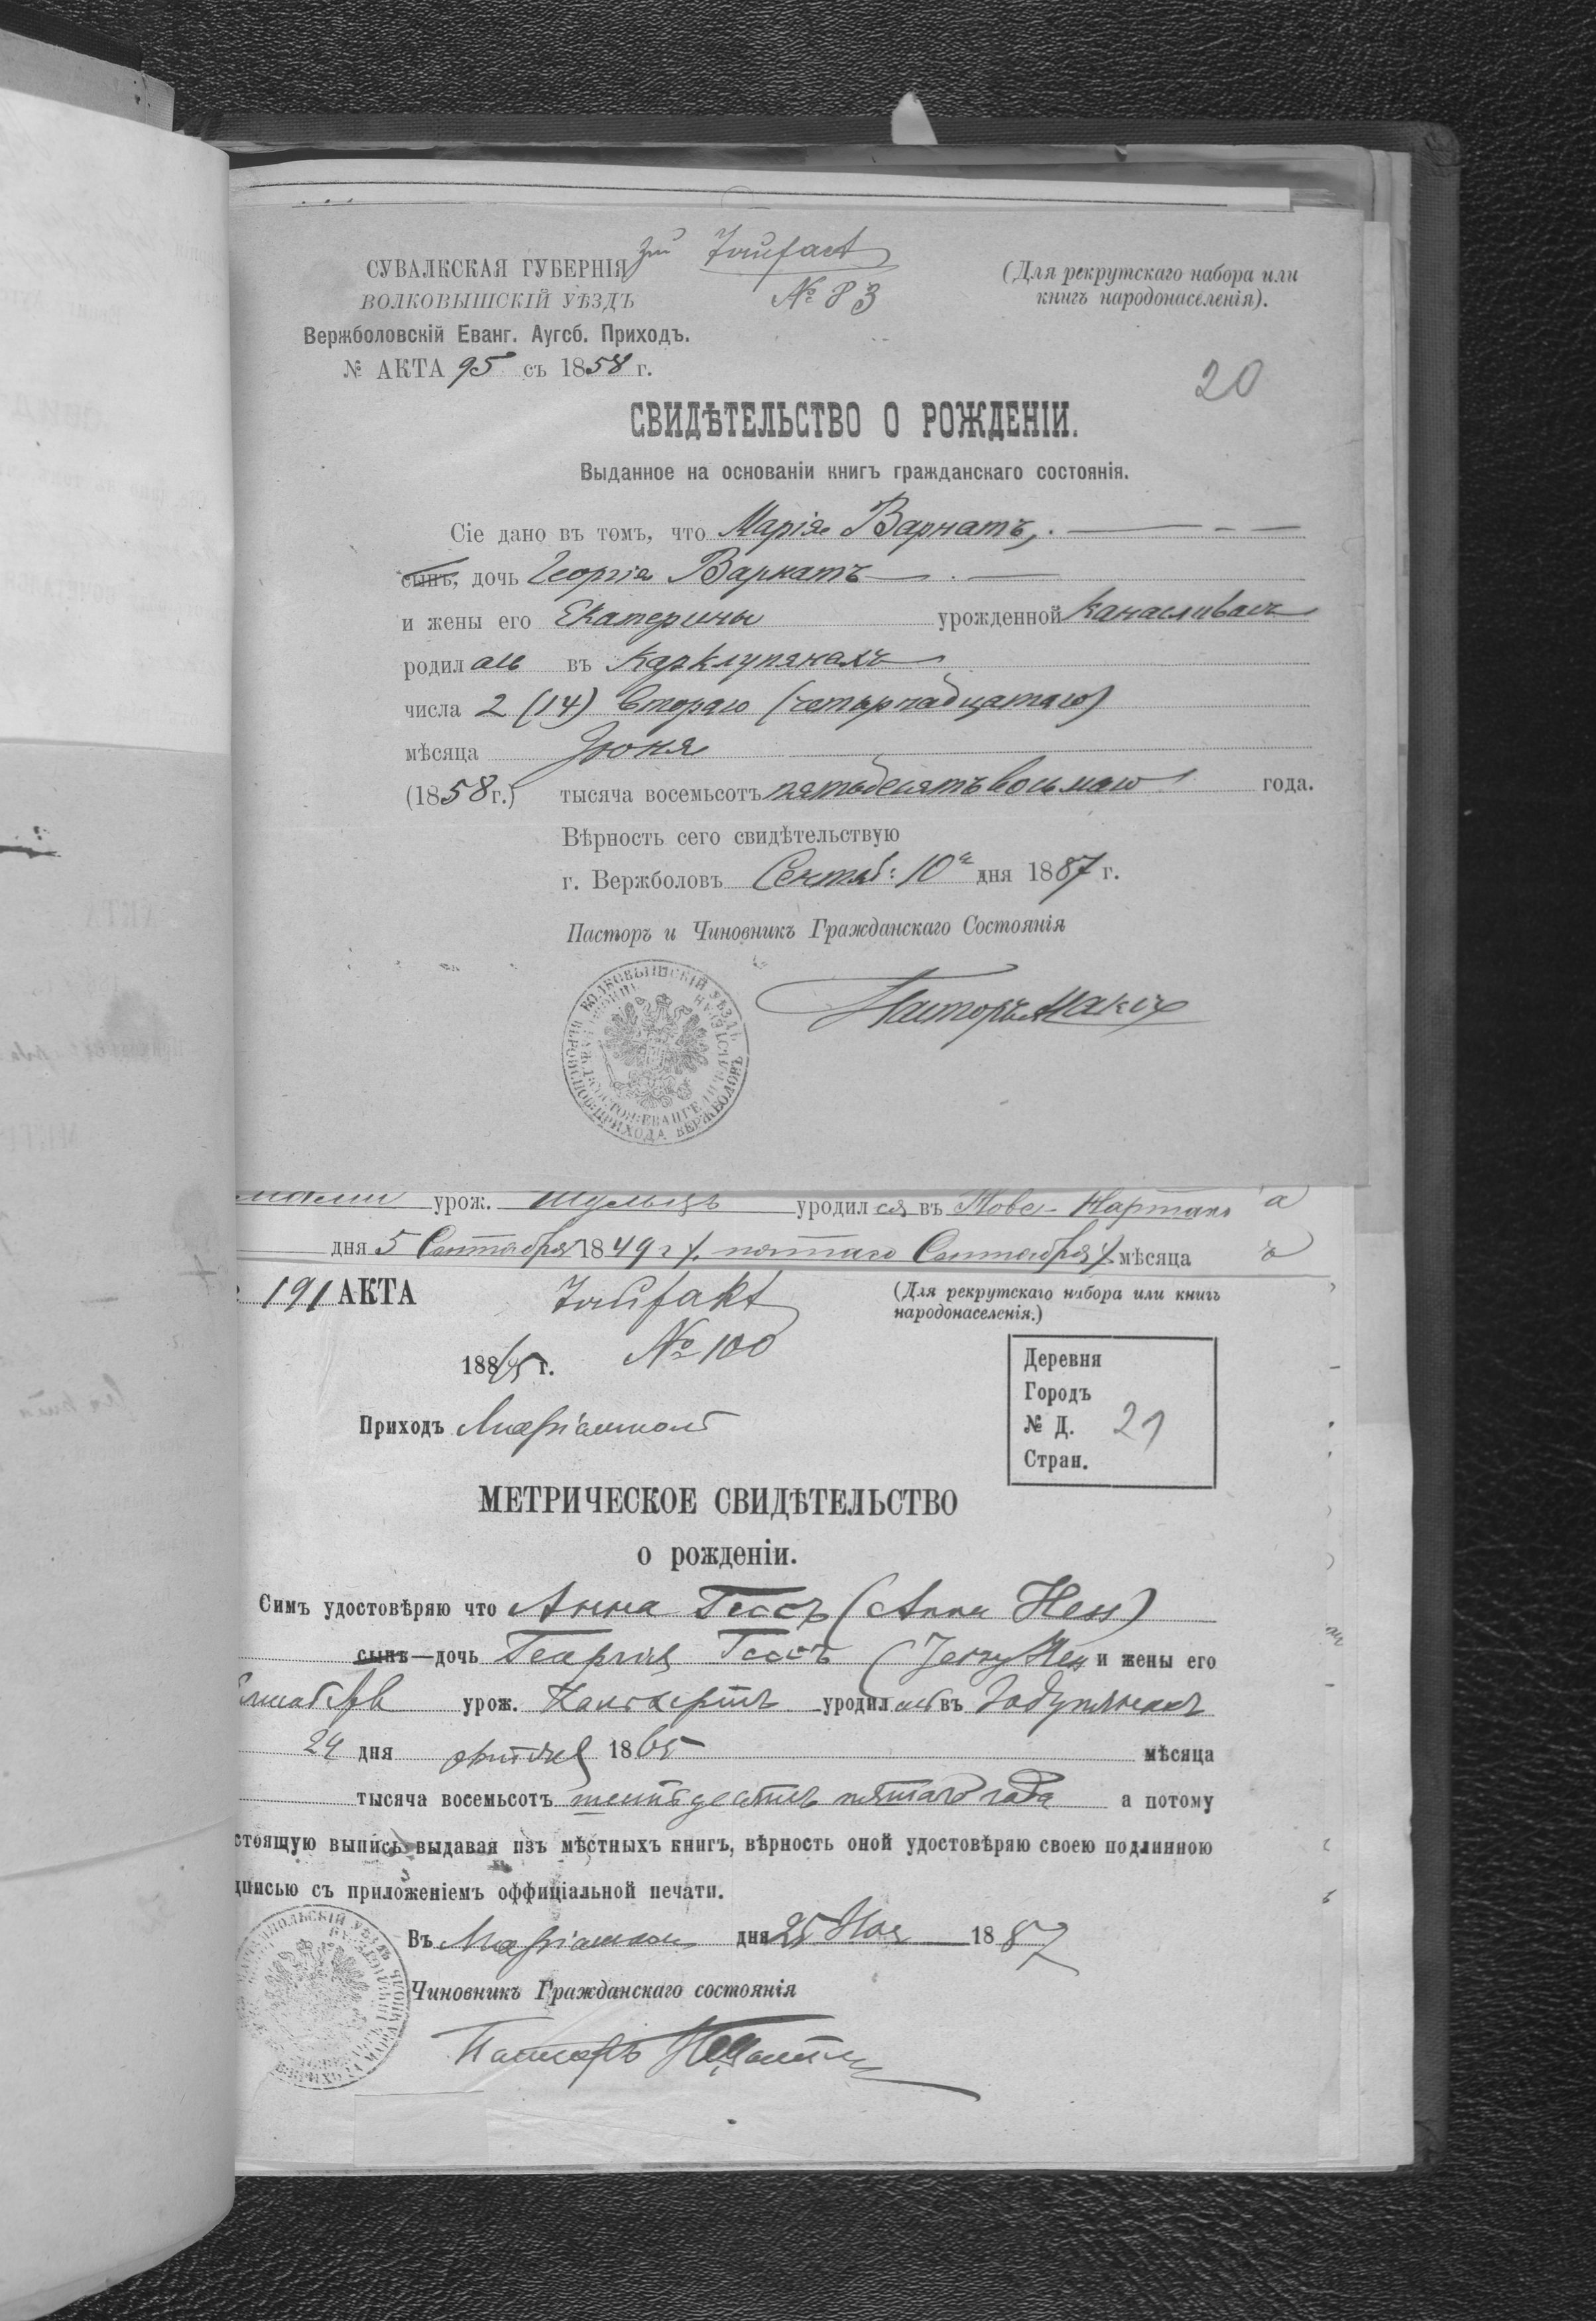 СУВАЛКСКАЯ ГУБЕРНІЯ
ВОЛКОВЫШСКІЙ УѢЗДЪ
Вержболовскій Еванг. Аугсб. Приходъ.
№ АКТА 95 съ 1858 г.
№ 83
(Для рекрутскаго набора или
книгъ народонаселенія).
20
СВИДѢТЕЛЬСТВО О РОЖДЕНІИ.
Выданное на основаніи книгъ гражданскаго состоянія.
Сіе дано въ томъ, что Марія Варнатъ,
сынъ, дочь Георгія Варнатъ
и жены его Екатерины урожденной
родилась въ
числа 2 (14) втораго (четырнадцатаго)
мѣсяца Іюня
(1858 г.) тысяча восемьсотъ пятьдесятъ восьмаго года.
Вѣрность сего свидѣтельствую
г. Вержболовъ Сентяб: 10 дня 1887 г.
Пасторъ и Чиновникъ Гражданскаго Состоянія
Пасторъ
урож. Шульцъ уродился въ
дня 5 Сентября 1849 г. пятаго Сентября мѣсяца
191 АКТА
№ 100
(Для рекрутскаго набора или книгъ
народонаселенія.)
Деревня
Городъ
№ Д. 21
Стран.
Приходъ
МЕТРИЧЕСКОЕ СВИДѢТЕЛЬСТВО
о рожденіи.
Симъ удостовѣряю что Анна Гессъ (Anna Hess)
сынъ—дочь Георгія Гессъ и жены его
урож. уродилась въ
24 дня 1865 мѣсяца
тысяча восемьсотъ шестьдесятъ пятаго года а потому
стоящую выпись выдавая изъ мѣстныхъ книгъ, вѣрность оной удостовѣряю своею подлинною
дписью съ приложеніемъ оффиціальной печати.
Въ дня 25 1887
Чиновникъ Гражданскаго состоянія
Пасторъ